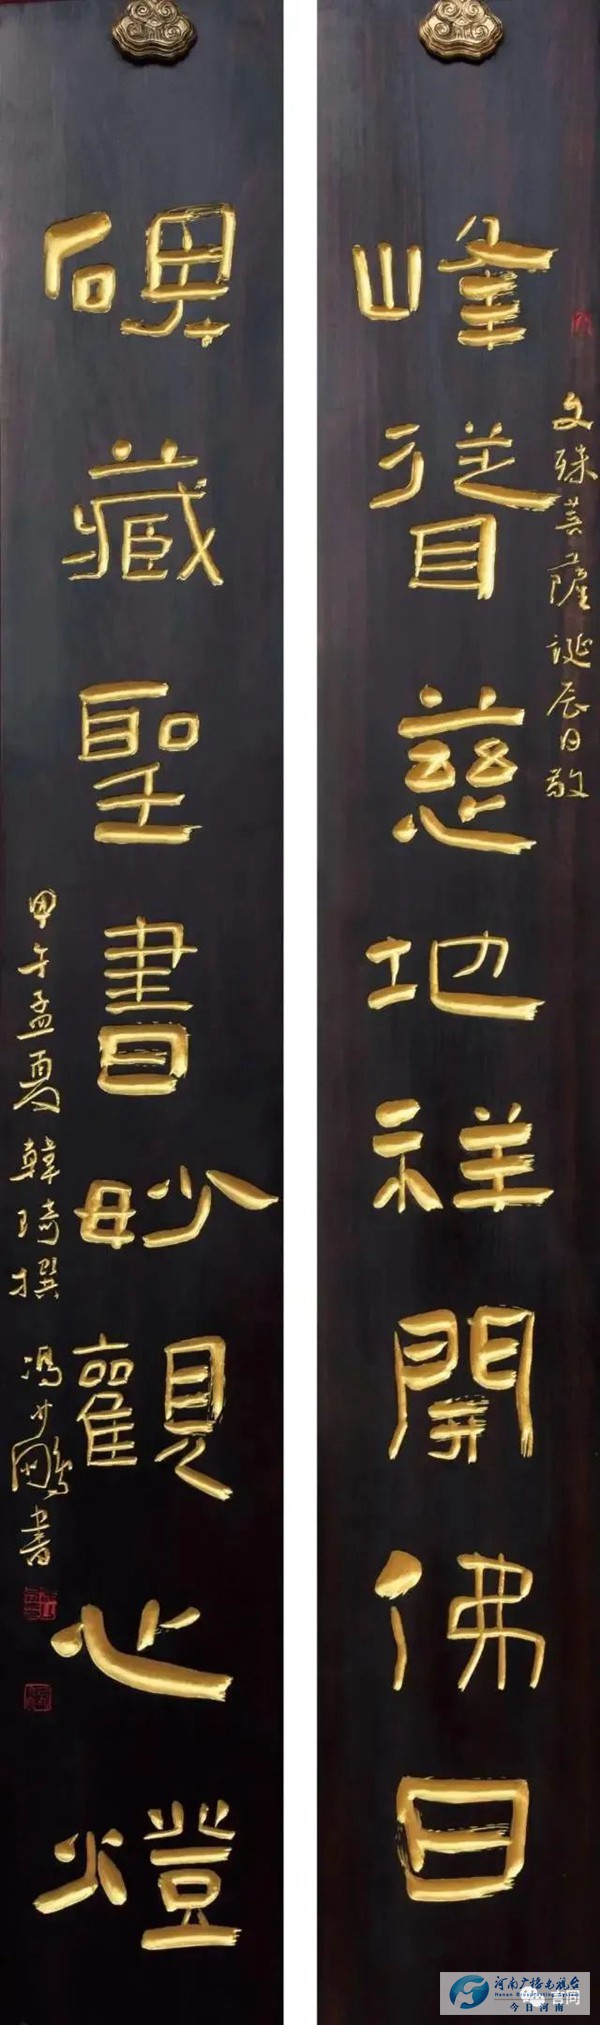 文殊菩薩誕辰日敬
峰聳慈地祥開佛日
碑藏聖書妙觀心燈
甲午孟夏韓琦撰 馮少鵬書
河南广播电视台
Henan Broadcasting System
今日河南